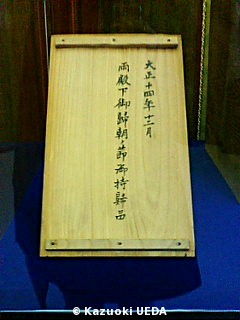 大正十四年十二月
両殿下御歸朝ノ節御持歸品
© Kazuoki UEDA